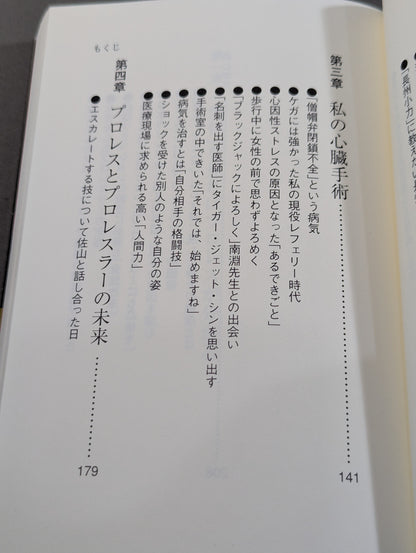 「長州小力」に教え
第三章 私の心臓手術………………141
●「僧帽弁閉鎖不全」という病気
●ケガには強かった私の現役レフェリー時代
●心因性ストレスの原因となった「あるできごと」
●歩行中に女性の前で思わずよろめく
●「ブラックジャックによろしく」南淵先生との出会い
●「名刺を出す医師」にタイガー・ジェット・シンを思い出す
●手術室の中できいた「それでは、始めますね」
●病気を治すとは「自分相手の格闘技」
●ショックを受けた別人のような自分の姿
●医療現場に求められる高い「人間力」
第四章 プロレスとプロレスラーの未来………………179
●エスカレートする技について佐山と話し合った日
もくじ